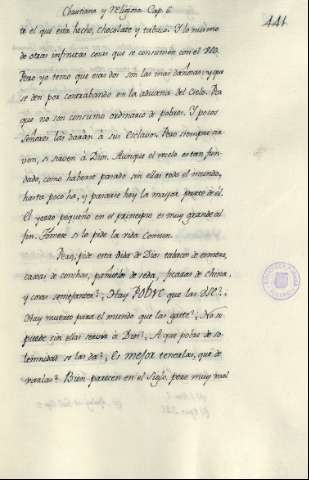 Christiana y Religiosa. Cap. 6
441
te el que esta hecho, chocolate y tabaco. Y lo mismo
de otras infinitas cosas que se consumen con el uso.
Pero yo temo que esas dos son las mas dañosas; y que
se den por contrabando en la aduana del Cielo. Por
que no son consumo ordinario de pobres. Y pocos
Señores las daran à sus Esclavos. Pero siempre sir
ven, si saben à Dios. Aunque el recelo es tan fun
dado, como haberse pasado sin ellas todo el mundo,
hasta poco ha, y pasarse hoy la mayor parte de èl.
El yerro pequeño en el principio es muy grande al
fin. Tomese si lo pide la vida comun.
Pero, pide esta Vida de Dios tabaco de
caxas de conchas, pañuelos de seda, de china,
y cosas semejantes? Hay POBRE que las USE?
Hay muerto para el mundo que las gaste? No se
puede sin ellas servir à Dios? A que pobre de so
lemnidad se las da? Es mejor tenerlas, que de
xarlas? Bien parecen en el Siglo, pero muy mal